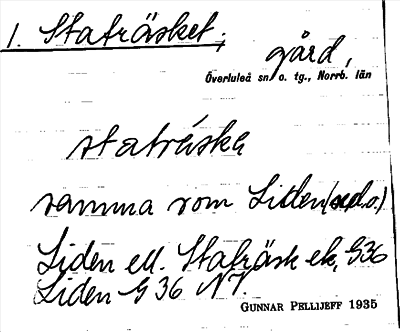 1. Staträsket;
gård,
Överluleå sn o. tg., Norrb. län
statrāska
samma som Liden (se d.o.)
Liden ell. Staträsk ek, G36
Liden G 36 NV.
GUNNAR PELLIJEFF 1935